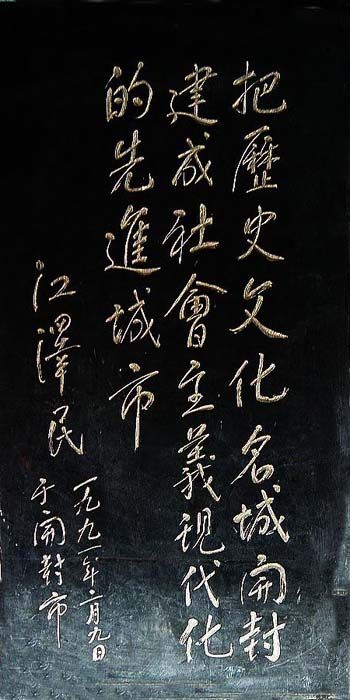 把歷史文化名城開封
建成社會主義現代化
的先進城市
江澤民
一九九一年二月九日
于開封市